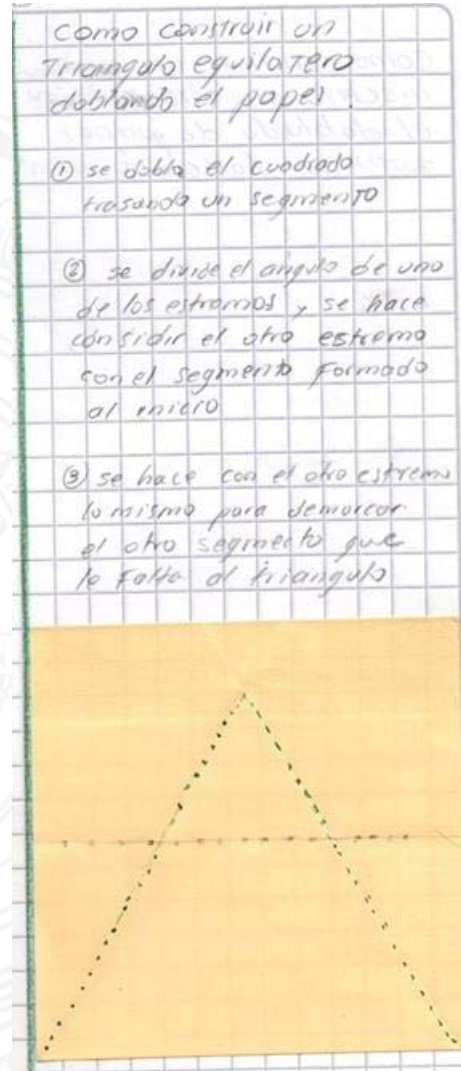 como construir un
Triangulo equilaTero
doblando el papel.
① se dobla el cuadrado
trasando un segmento
② se divide el angulo de uno
de los estramos y se hace
considir el otro estremo
con el segmento formado
al inicio
③ se hace con el otro estremo
lo mismo para demarcar
el otro segmecto que
le Falta al triangulo